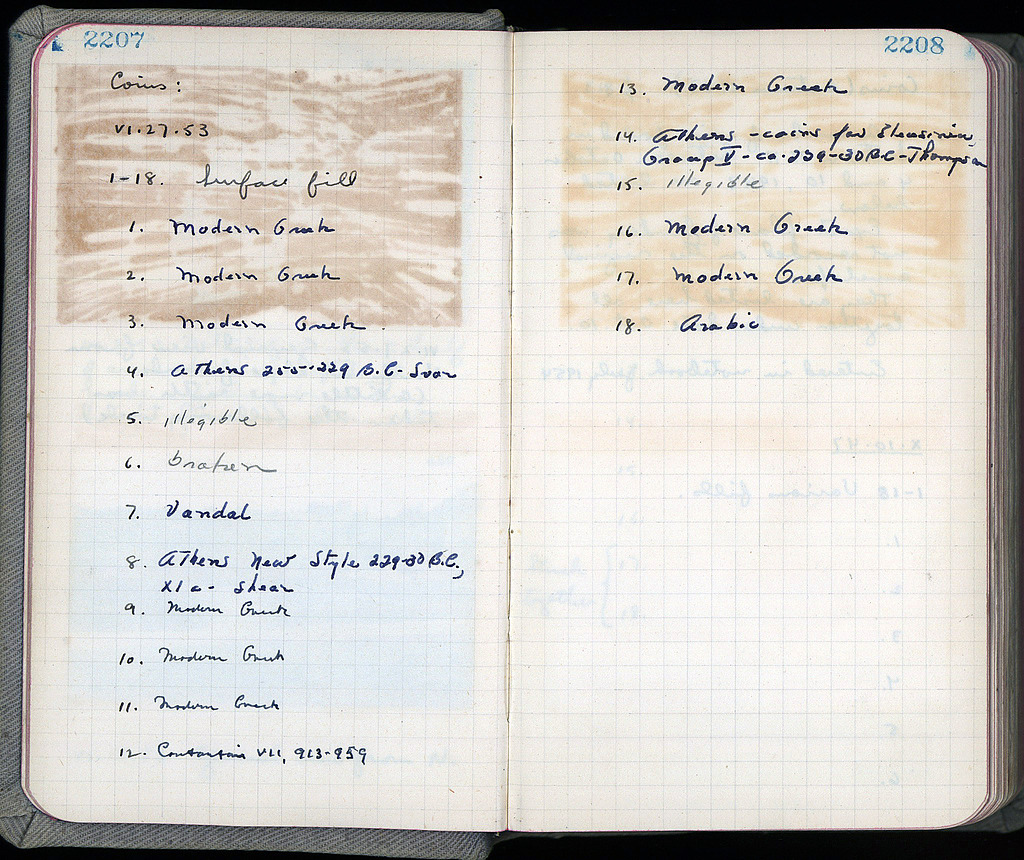 2207
Coins:
VI.27.53
1-18. Surface fill
1. Modern Greek
2. Modern Greek
3. Modern Greek.
4. Athens 255-229 B.C.-Svor
5. illegible
6. broken
7. Vandal
8. Athens New Style 229-30 B.C.,
XI a - Shear
9. Modern Greek
10. Modern Greek
11. Modern Greek
12. VII, 913-959
2208
13. Modern Greek
14. Athens - coins for Eleusinia,
Group V - ca. 229-30 B.C.-Thompson
15. illegible
16. Modern Greek
17. Modern Greek
18. Arabic
Entered in notebook July, 1954
X.10.47
1-18 Various fills.